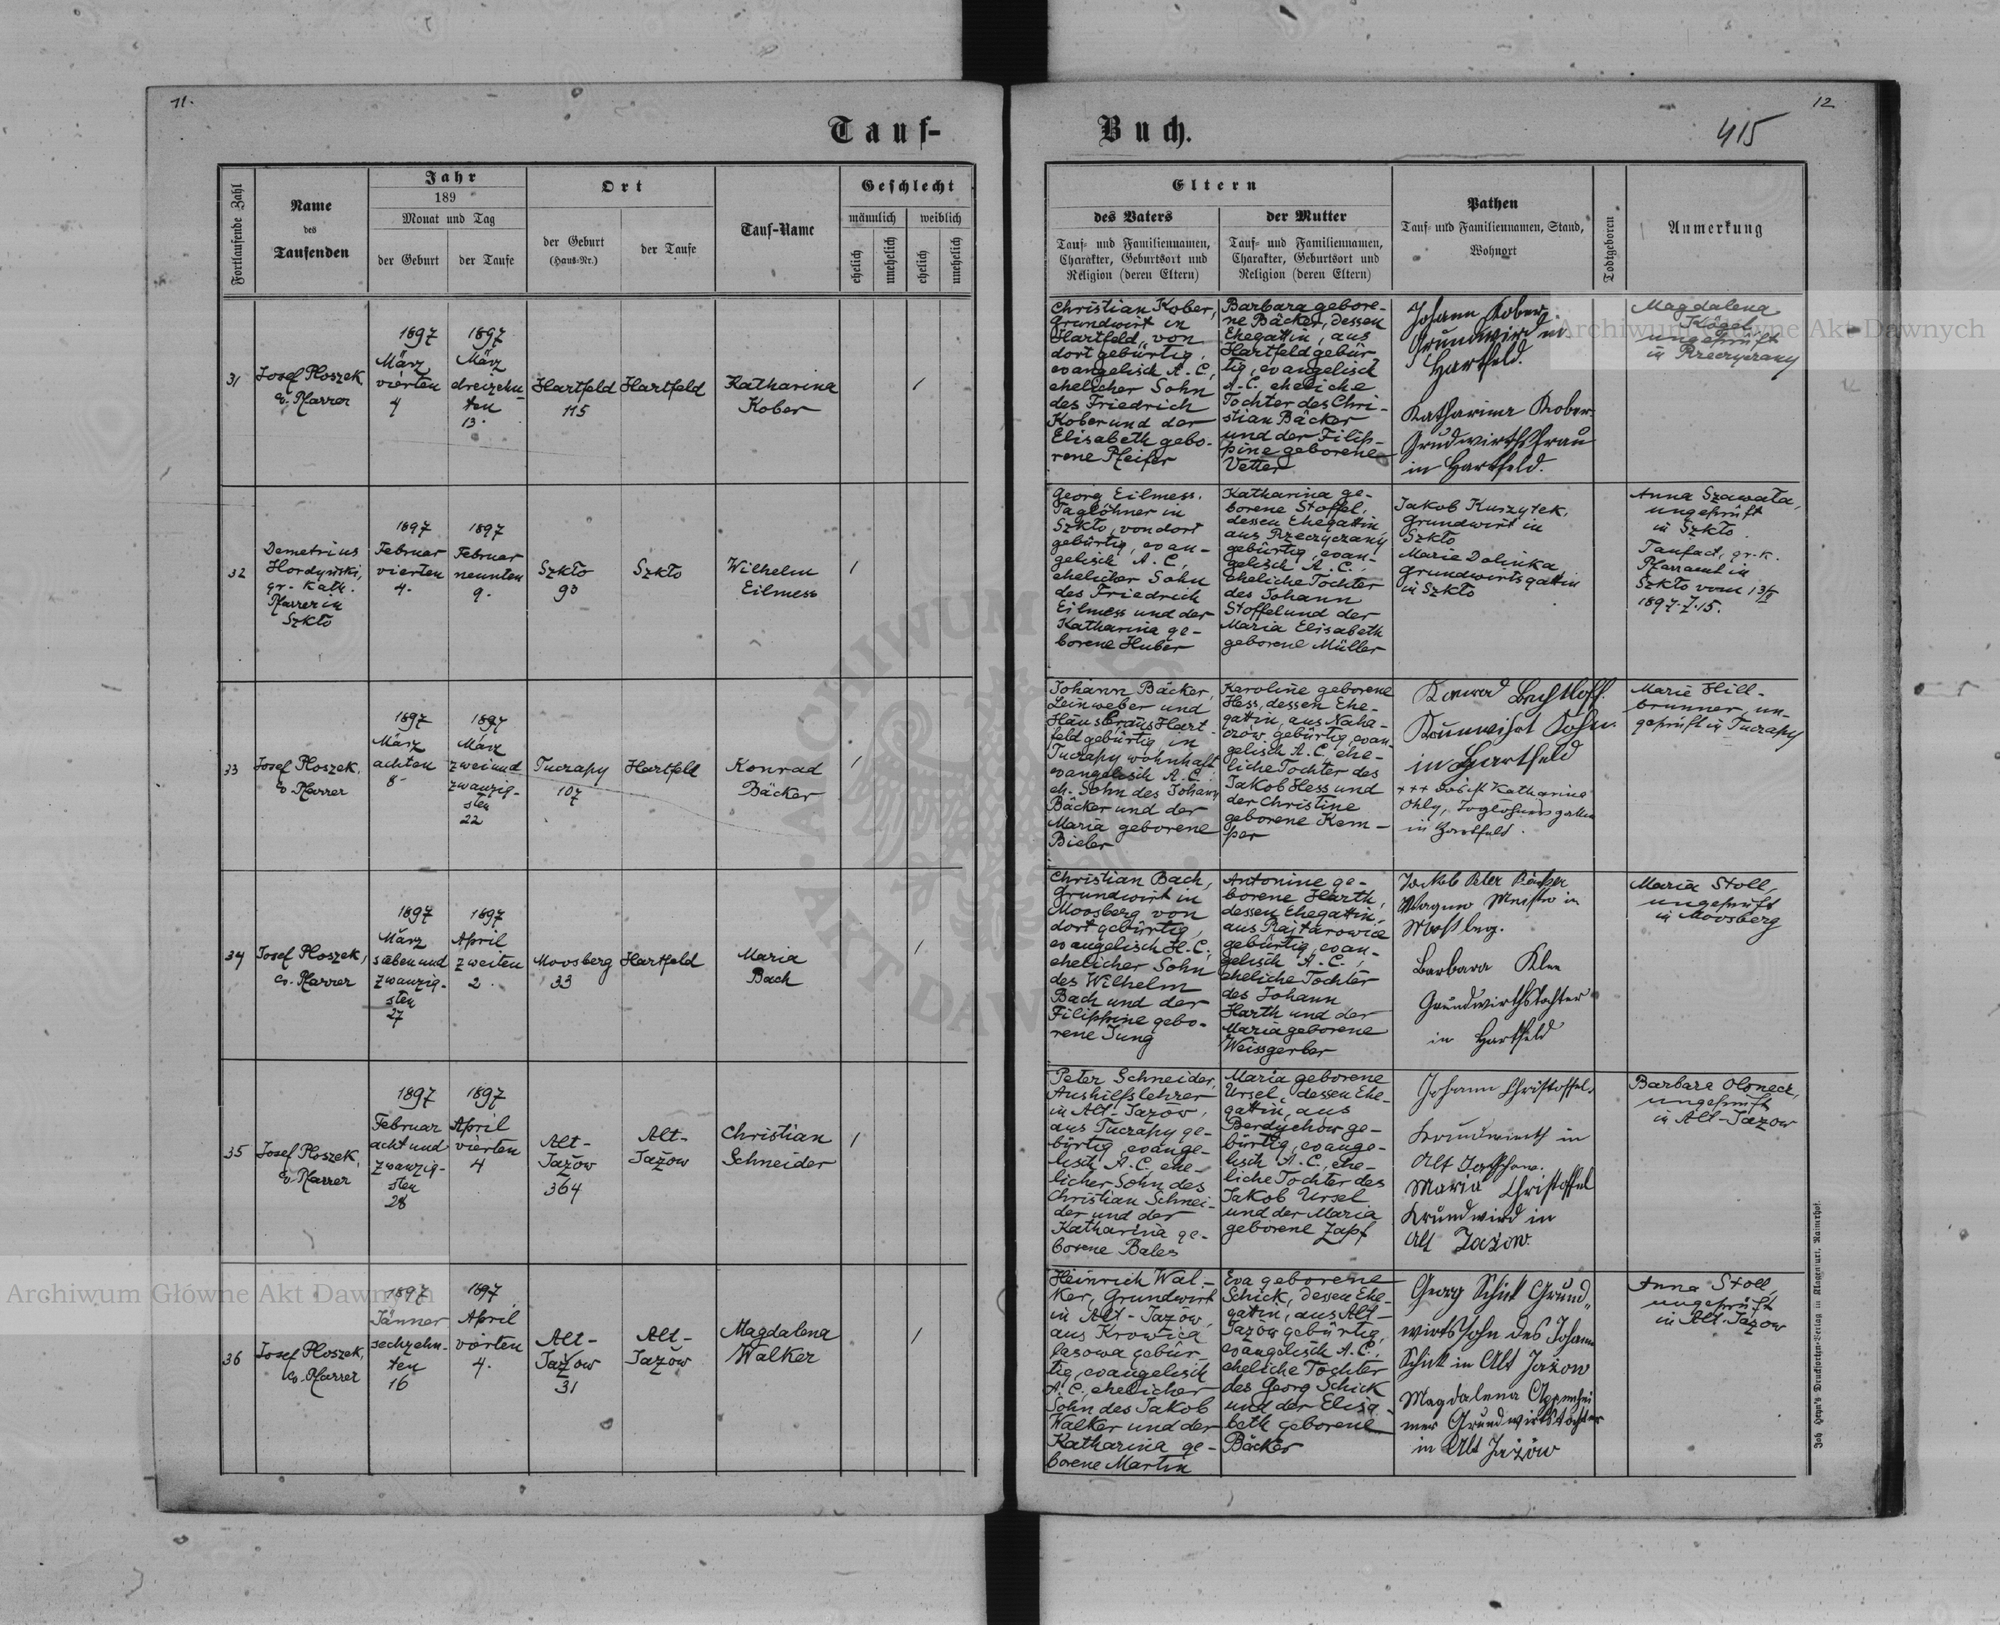 11.
12
415
Tauf-
Buch.
Fortlaufende Zahl
Name
des
Taufenden
Jahr
189
Monat und Tag
der Geburt
der Taufe
Ort
der Geburt
(Haus-Nr.)
der Taufe
Tauf-Name
Geschlecht
männlich
weiblich
ehelich
unehelich
ehelich
unehelich
Eltern
des Vaters
Tauf- und Familiennamen,
Charakter, Geburtsort und
Religion (deren Eltern)
der Mutter
Tauf- und Familiennamen,
Charakter, Geburtsort und
Religion (deren Eltern)
Pathen
Tauf- und Familiennamen, Stand,
Wohnort
Todtgeboren
Anmerkung
31
Josef Ploszek
ev. Pfarrer
1897
März
vierten
4
1897
März
dreizehn-
ten
13.
Hartfeld
115
Hartfeld
Katharina
Kober
1
Christian Kober,
Grundwirt in
Hartfeld, von
dort gebürtig,
evangelisch A.C.,
ehelicher Sohn
des Friedrich
Kober und der
Elisabeth gebo-
rene Pfeifer
Barbara gebore-
ne Bäcker, dessen
Ehegattin, aus
Hartfeld gebür
tig, evangelisch
A.C. eheliche
Tochter des Chri-
stian Bäcker
und der Filip-
pine geborene
Vetter
Johann Kober
Grundwird in
Hartfeld.
Katharina Kober
Grudwirthsfrau
in Hartfeld.
Magdalena
Kögel
ungeprüft
in Rzeczyczany
32
Demetrius
Hordyński,
gr. kath.
Pfarrer in
Szkło
1897
Februar
vierten
4.
1897
Februar
neunten
9.
Szkło
93
Szkło
Wilhelm
Eilmess
1
Georg Eilmess,
Taglöhner in
Szkło, von dort
gebürtig, evan-
gelisch A.C.,
ehelicher Sohn
des Friedrich
Eilmess und der
Katharina ge-
borene Huber
Katharina ge-
borene Stoffel,
dessen Ehegattin
aus Rzeczyczany
gebürtig, evan-
gelisch A.C.,
eheliche Tochter
des Johann
Stoffel und der
Maria Elisabeth
geborene Müller
Jakob Kuszytek,
Grundwirt in
Szkło
Marie Dolinka
Grundwirtsgattin
in Szkło
Anna Szawała,
ungeprüft
in Szkło.
Taufact, gr. k.
Pfarramt in
Szkło vom 13/
1897. Z. 15.
33
Josef Ploszek,
ev. Pfarrer
1897
März
achten
8
1897
März
zweiund
zwanzig-
sten
22
Tuczapy
107
Hartfeld
Konrad
Bäcker
1
Johann Bäcker,
Leinweber und
Häusler aus Hart
feld gebürtig, in
Tuczapy wohnhaft
evangelisch A.C.,
eh. Sohn des Johann
Bäcker und der
Maria geborene
Bieber
Karoline geborene
Hess, dessen Ehe-
gattin, aus Naha-
czow gebürtig, evan-
gelisch A.C., ehe-
liche Tochter des
Jakob Hess und
der Christine
geborene Kem-
per
Konrad Bechtloff
in Hartfeld
+++ Katharina
Ohly,
in Hartfeld.
Marie Hill-
brunner, un-
geprüft in Tuczapy
34
Josef Ploszek,
ev. Pfarrer
1897
März
siebenund
zwanzig-
sten
27
1897
April
zweiten
2.
Moosberg
33
Hartfeld
Maria
Bach
1
Christian Bach,
Grundwirt in
Moosberg von
dort gebürtig,
evangelisch H.C.,
ehelicher Sohn
des Wilhelm
Bach und der
Filippine gebo-
rene Jung
Antonine ge-
borene Harth,
dessen Ehegattin,
aus Rajtarowice
gebürtig, evan-
gelisch A.C.,
eheliche Tochter
des Johann
Harth und der
Maria geborene
Weissgerber
Jackob Peter
Wagner Meister in
Moßberg.
Barbara Klee
Grundwirthstochter
in Hartfeld
Maria Stoll,
ungeprüft
in Moosberg
35
Josef Ploszek,
ev. Pfarrer
1897
Februar
acht und
zwanzig-
sten
28
1897
April
vierten
4
Alt-
Jażow
364
Alt-
Jażow
Christian
Schneider
1
Peter Schneider,
Aushilfslehrer
in Alt-Jazów,
aus Tuczapy ge-
bürtig, evange-
lisch A.C., ehe-
licher Sohn des
Christian Schnei-
der und der
Katharina ge-
borene Bales
Maria geborene
Ursel, dessen Ehe-
gattin, aus
Berdychow ge-
bürtig, evange-
lisch A.C., ehe-
liche Tochter des
Jakob Ursel
und der Maria
geborene Zapf
Johann Christoffel,
Grundwirth in
Alt
Maria Christoffel
Grundwird in
Alt Jażow.
Barbara Olsneck,
ungeprüft
in Alt-Jazow
36
Josef Ploszek,
ev. Pfarrer
1897
Jänner
sechzehn-
ten
16
1897
April
vierten
4.
Alt-
Jażow
31
Alt-
Jażow
Magdalena
Walker
1
Heinrich Wal-
ker, Grundwirt
in Alt-Jazów,
aus Krowica
lasowa gebür-
tig, evangelisch
A.C., ehelicher
Sohn des Jakob
Walker und der
Katharina ge-
borene Martin
Eva geborene
Schick, dessen Ehe-
gattin, aus Alt-
Jazów gebürtig,
evangelisch A.C.,
eheliche Tochter
des Georg Schick
und der Elisa-
beth geborene
Bäcker
Georg Schick Grund„
wirtssohn des Johann
Schick in Alt Jażow
Magdalena Oppenhei
mer Grundwirtstochter
in Alt Jażów
Anna Stoll,
ungeprüft
in Alt-Jazow
Joh. Heyn's Drucksorten-Verlag in Klagenfurt, Rainerhof.
Archiwum Główne Akt Dawnych
Archiwum Główne Akt Dawnych
ARCHIWUM
AKT DAWNYCH